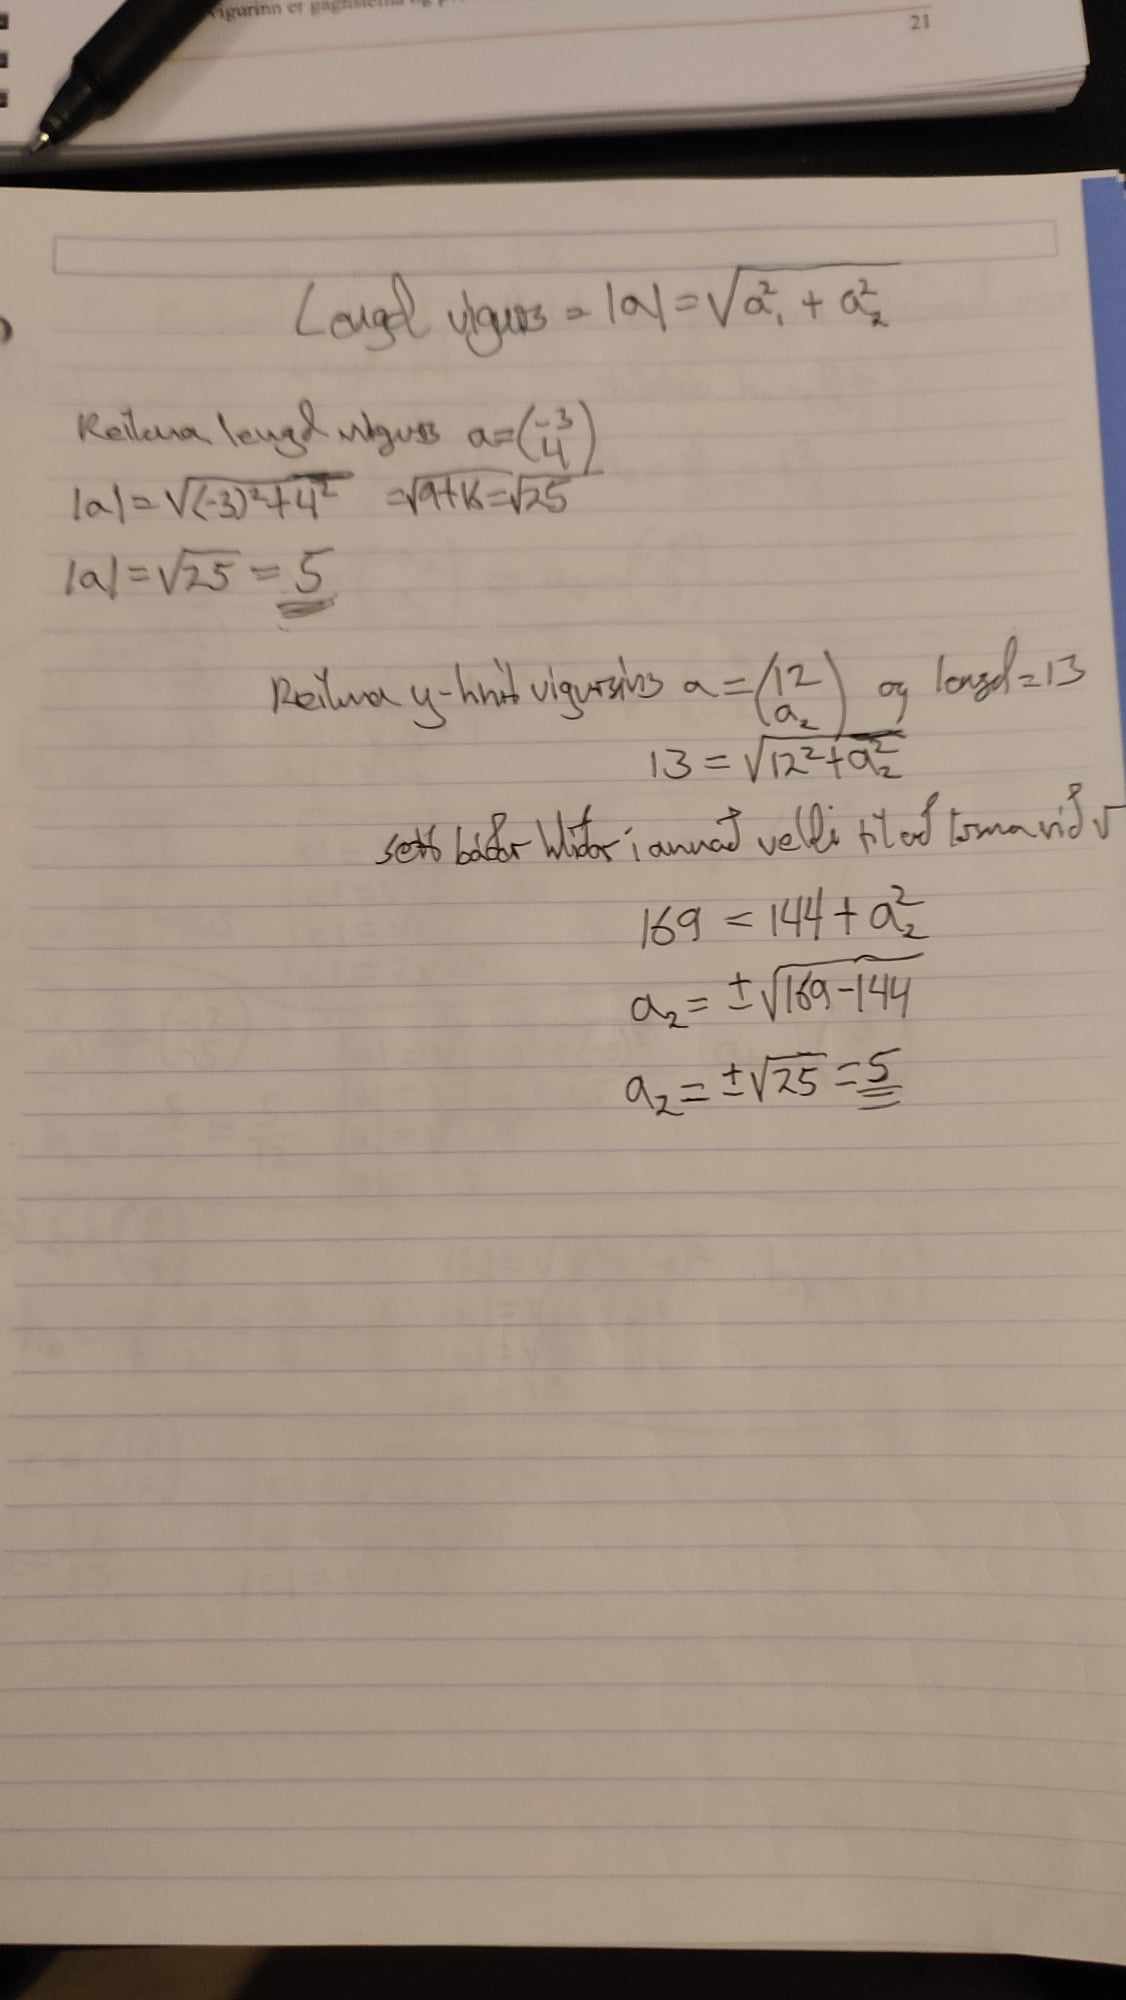 Vigurinn er
21
Lengd vigurs = |a| = √a₁² + a₂²
Reikna lengd vigurs a = (-3 4)
|a| = √(-3)² + 4² = √9+16 = √25
|a| = √25 = 5
Reikna y-hnit vigursins a = (12 a₂) og lengd = 13
13 = √12² + a₂²
báðar hliðar í annað veldi til að losna við √
169 = 144 + a₂²
a₂ = ±√169-144
a₂ = ±√25 = 5